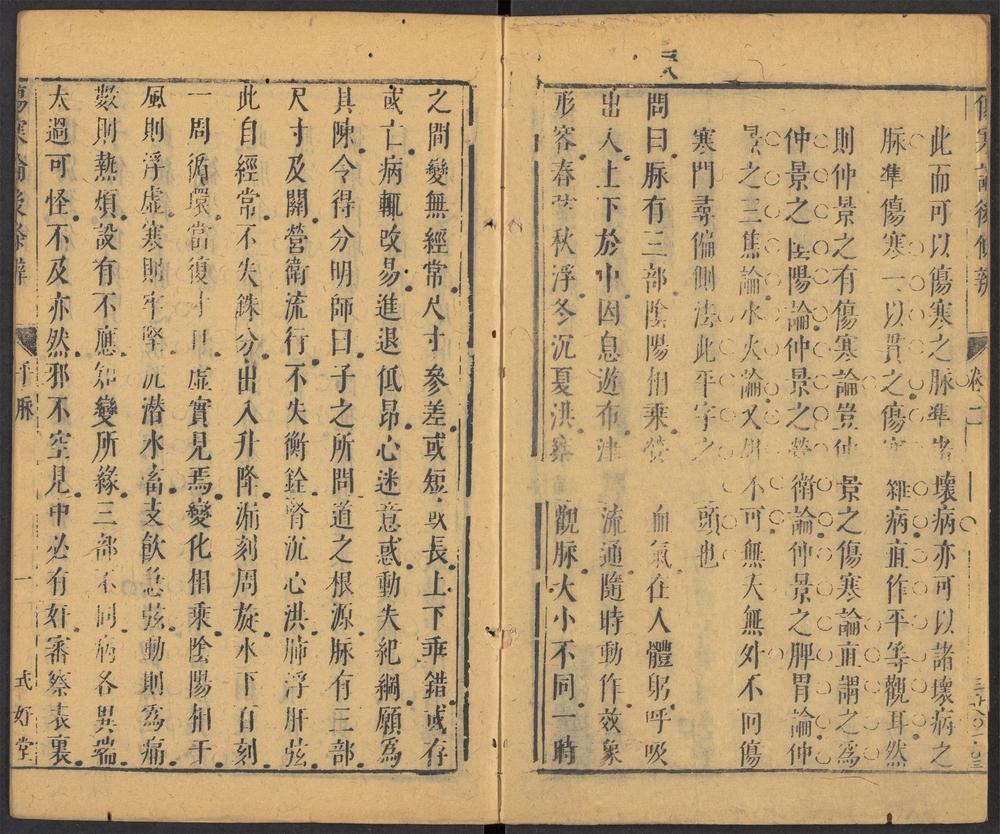 傷寒論後條辨
卷二
此而可以傷寒之脉準諸壞病亦可以諸壞病之
脉準傷寒一以貫之傷寒雜病直作平等觀耳然
則仲景之有傷寒論豈仲景之傷寒論直謂之爲
仲景之陰陽論仲景之營衛論仲景之脾胃論仲
景之三焦論水火論又何不可無大無外不向傷
寒門尋徧側法此平字之頭也
問曰脉有三部陰陽相乘營血氣在人體躬呼吸
出入上下於中因息遊布津流通隨時動作效象
形容春弦秋浮冬沉夏洪察觀脉大小不同一時
之間變無經常尺寸參差或短或長上下乖錯或存
或亡病輒改易進退低昂心迷意惑動失紀綱願爲
具陳令得分明師曰子之所問道之根源脉有三部
尺寸及關營衛流行不失衡銓腎沉心洪肺浮肝弦
此自經常不失銖分出入升降漏刻周旋水下百刻
一周循環當復寸口虛實見焉變化相乘陰陽相干
風則浮虛寒則牢堅沉潛水畜支飲急弦動則爲痛
數則熱煩設有不應知變所緣三部不同病各異端
太過可怪不及亦然邪不空見中必有奸審察表裏
傷寒論後條辨
平脉
一
式好堂